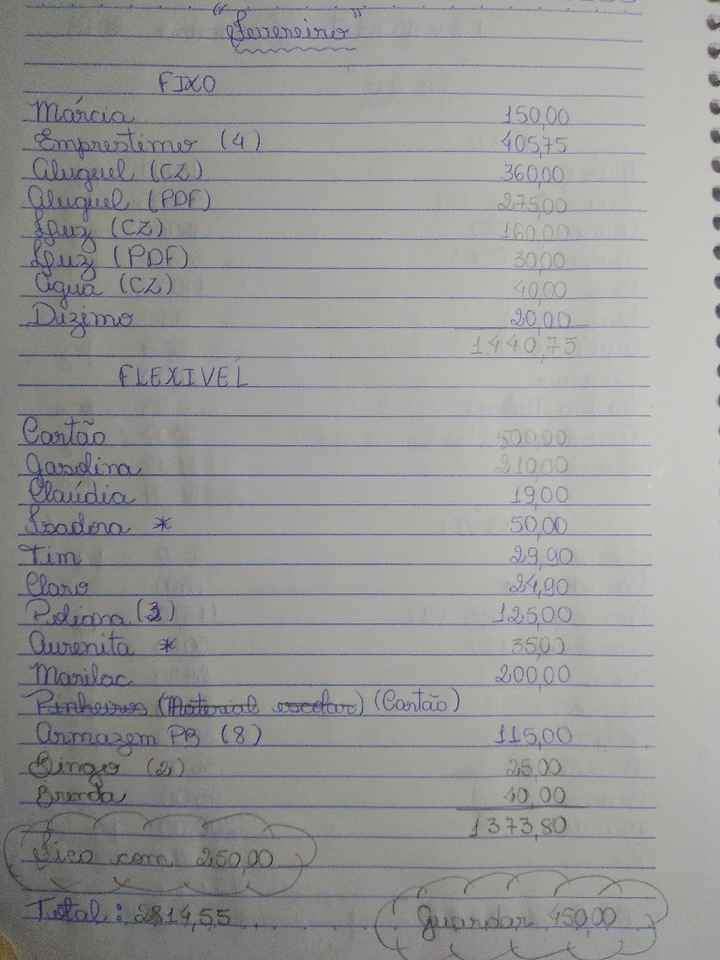 "Fevereiro"
FIXO
Márcia 150,00
Emprestimo (4) 405,75
Aluguel (CZ) 360,00
Aluguel (PDF) 275,00
Luz (CZ) 160,00
Luz (PDF) 30,00
Água (CZ) 40,00
Dizimo 20,00
1440,75
FLEXIVEL
Cartão 500,00
Gasolina 210,00
Claúdia 19,00
Isadora * 50,00
Tim 29,90
Claro 24,90
Poliana (3) 125,00
Aurenita * 35,00
Marilac 200,00
Pinheiros (Material escolar) (Cartão)
Armazem PB (8) 115,00
Bingo (2) 25,00
Brenda 40,00
1373,80
Fico com 250,00
Total: 2814,55
Guardar 450,00